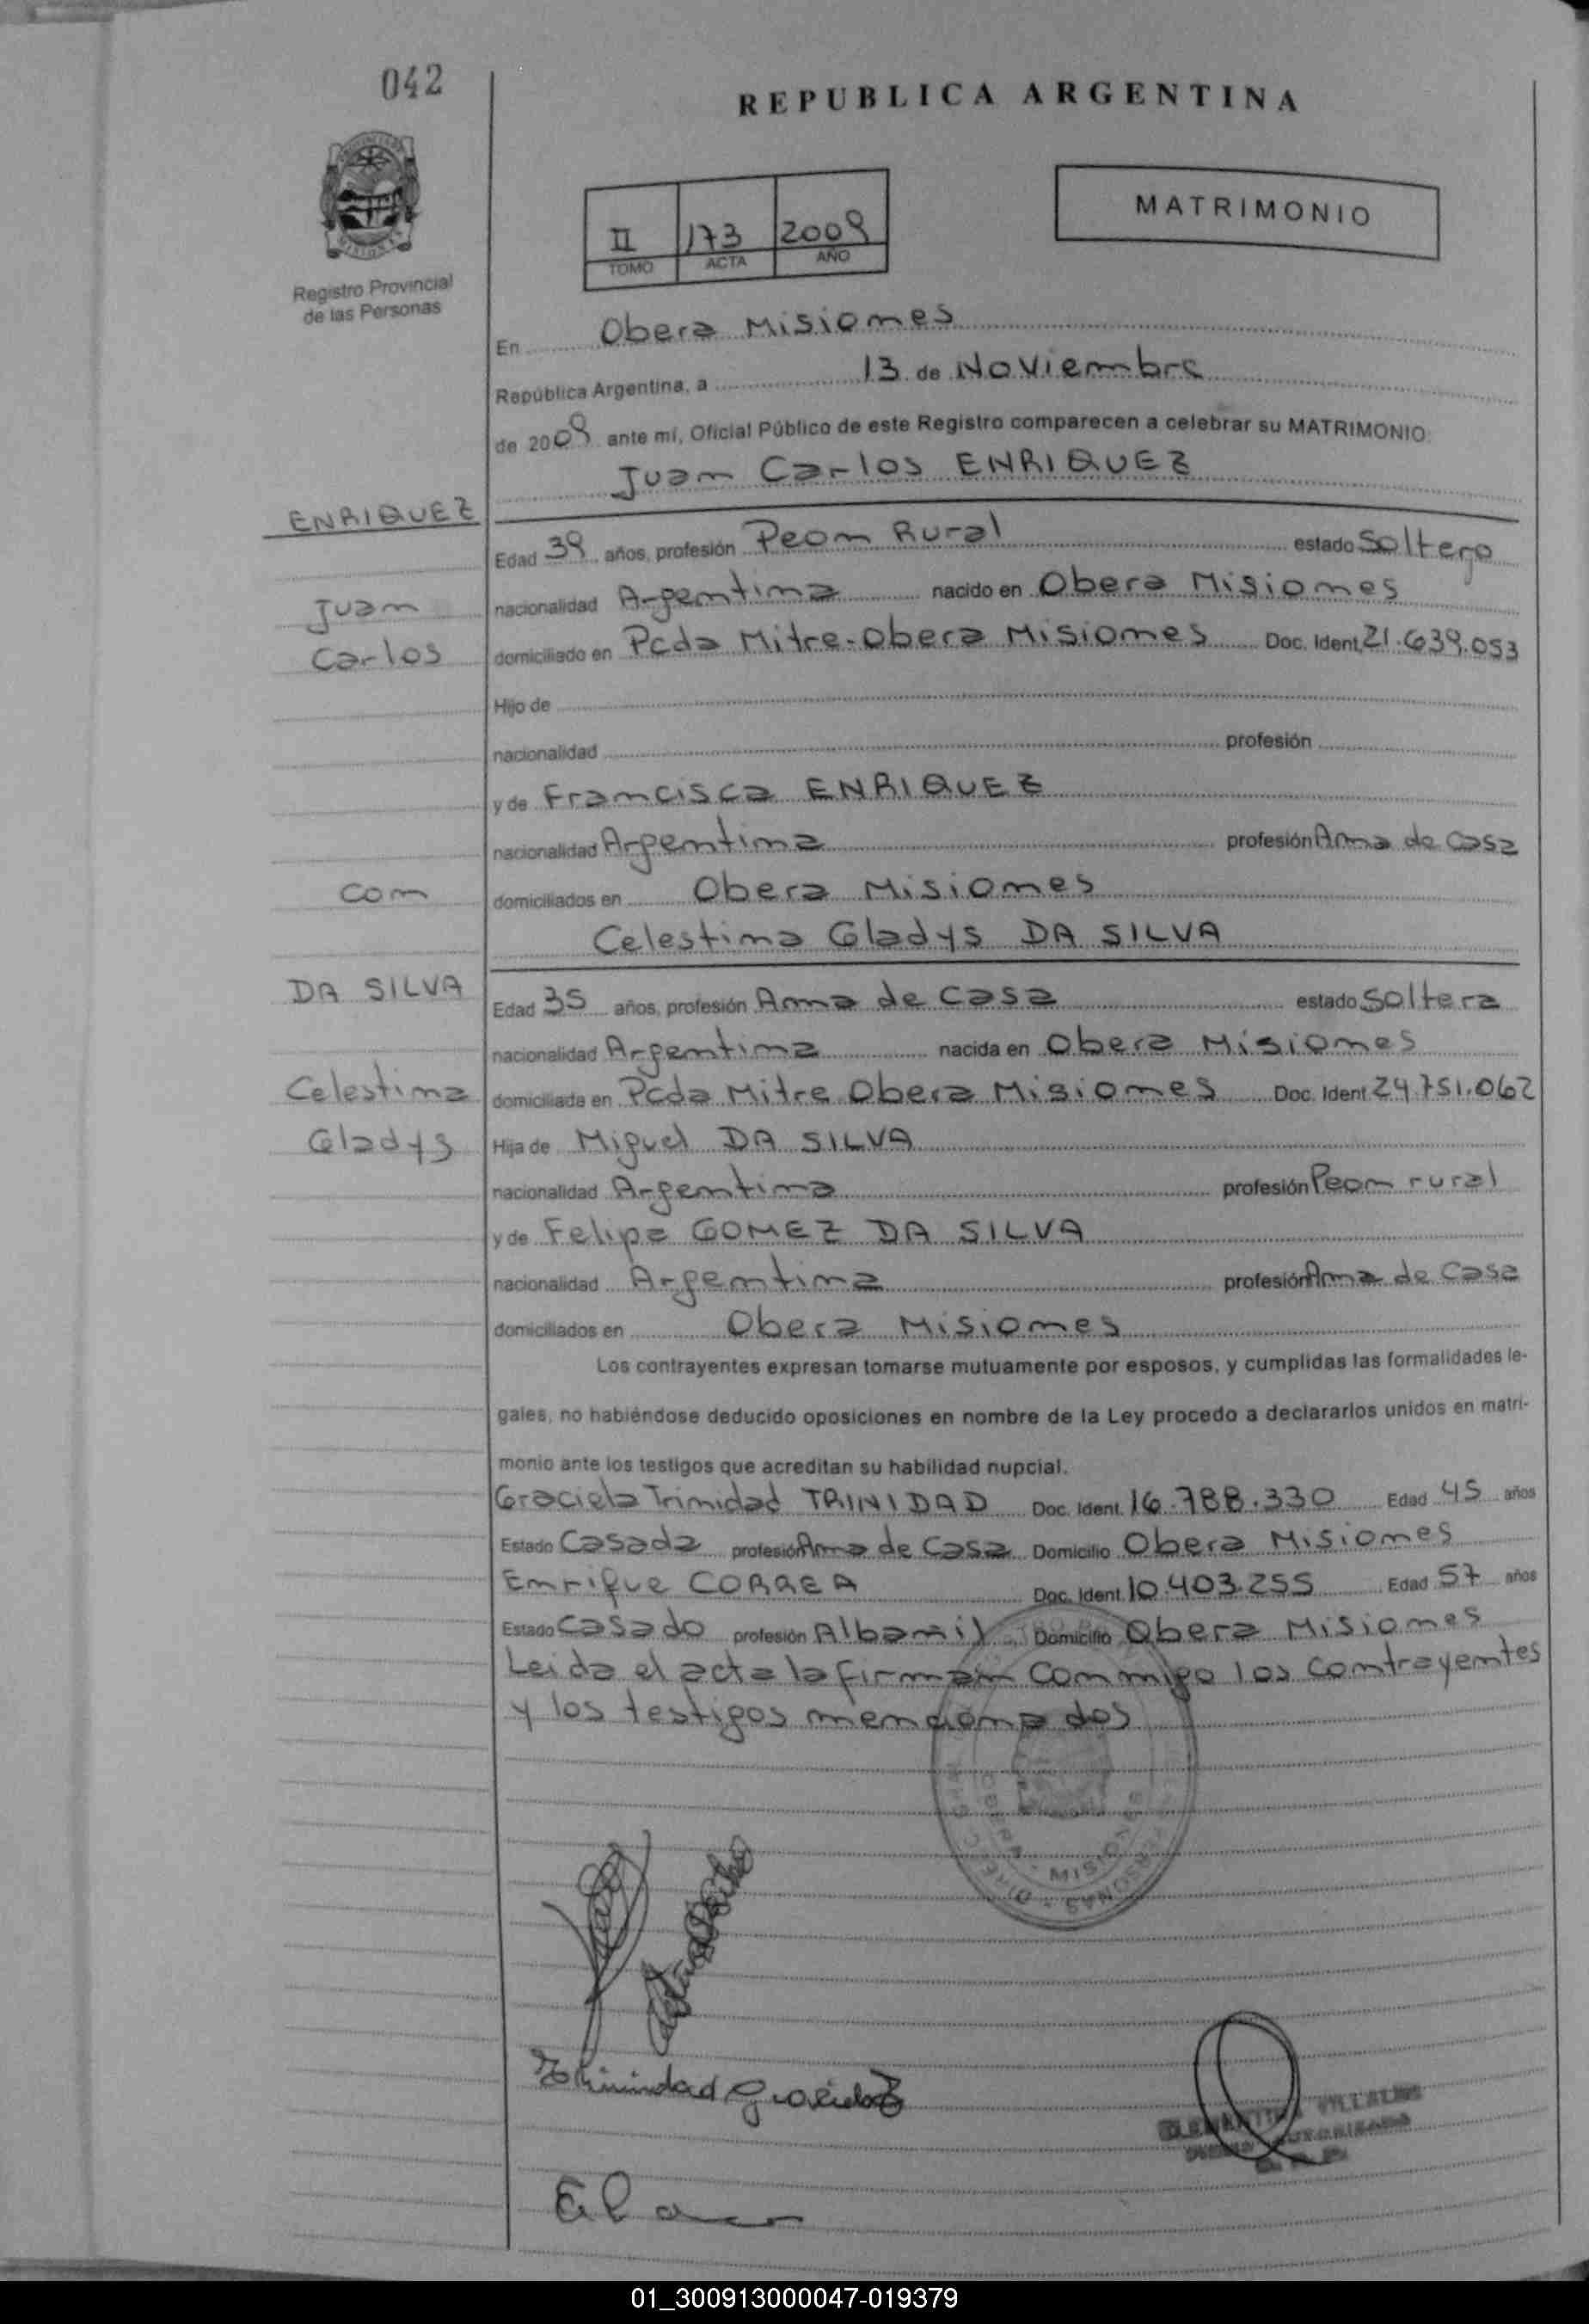 042
REPUBLICA ARGENTINA
MATRIMONIO
II 173 2009
TOMO ACTA AÑO
Registro Provincial
de las Personas
En Obera Misiones
República Argentina, a 13 de Noviembre
de 2009 ante mí, Oficial Público de este Registro comparecen a celebrar su MATRIMONIO:
Juan Carlos ENRIQUEZ
ENRIQUEZ
Edad 39 años, profesión Peon Rural estado Soltero
Juan
nacionalidad Argentina nacido en Obera Misiones
Carlos
domiciliado en Pcda Mitre-Obera Misiones Doc. Ident. 21.639.053
Hijo de
nacionalidad profesión
y de Francisca ENRIQUEZ
nacionalidad Argentina profesión Ama de Casa
con
domiciliados en Obera Misiones
Celestina Gladys DA SILVA
DA SILVA
Edad 35 años, profesión Ama de Casa estado Soltera
nacionalidad Argentina nacida en Obera Misiones
Celestina
domiciliada en Pcda Mitre Obera Misiones Doc. Ident. 24.751.062
Gladys
Hija de Miguel DA SILVA
nacionalidad Argentina profesión Peon rural
y de Felipa GOMEZ DA SILVA
nacionalidad Argentina profesión Ama de Casa
domiciliados en Obera Misiones
Los contrayentes expresan tomarse mutuamente por esposos, y cumplidas las formalidades le-
gales, no habiéndose deducido oposiciones en nombre de la Ley procedo a declararlos unidos en matri-
monio ante los testigos que acreditan su habilidad nupcial.
Graciela Trinidad TRINIDAD Doc. Ident. 16.788.330 Edad 45 años
Estado Casada profesión Ama de Casa Domicilio Obera Misiones
Enrique CORREA Doc. Ident. 10.403.255 Edad 57 años
Estado Casado profesión Albañil Domicilio Obera Misiones
Leida el acta la firman conmigo los contrayentes
y los testigos mencionados
OBERA - MISIONES
Trinindad Graciela
01_300913000047-019379